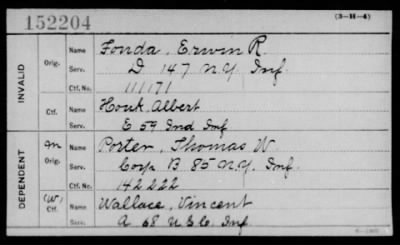 152204
(3—H—4)
INVALID
Orig. Name Fonda, Erwin R.
Serv. D 147 N.Y. Inf.
Ctf. No. 111171
Ctf. Name Houk, Albert
Serv. E 59 Ind Inf
DEPENDENT
Orig. Name Porter, Thomas W
Serv. Corp B 85 N.Y. Inf.
Ctf. No. 142222
(W) Ctf. Name Wallace, Vincent
Serv. A 68 U.S.C. Inf